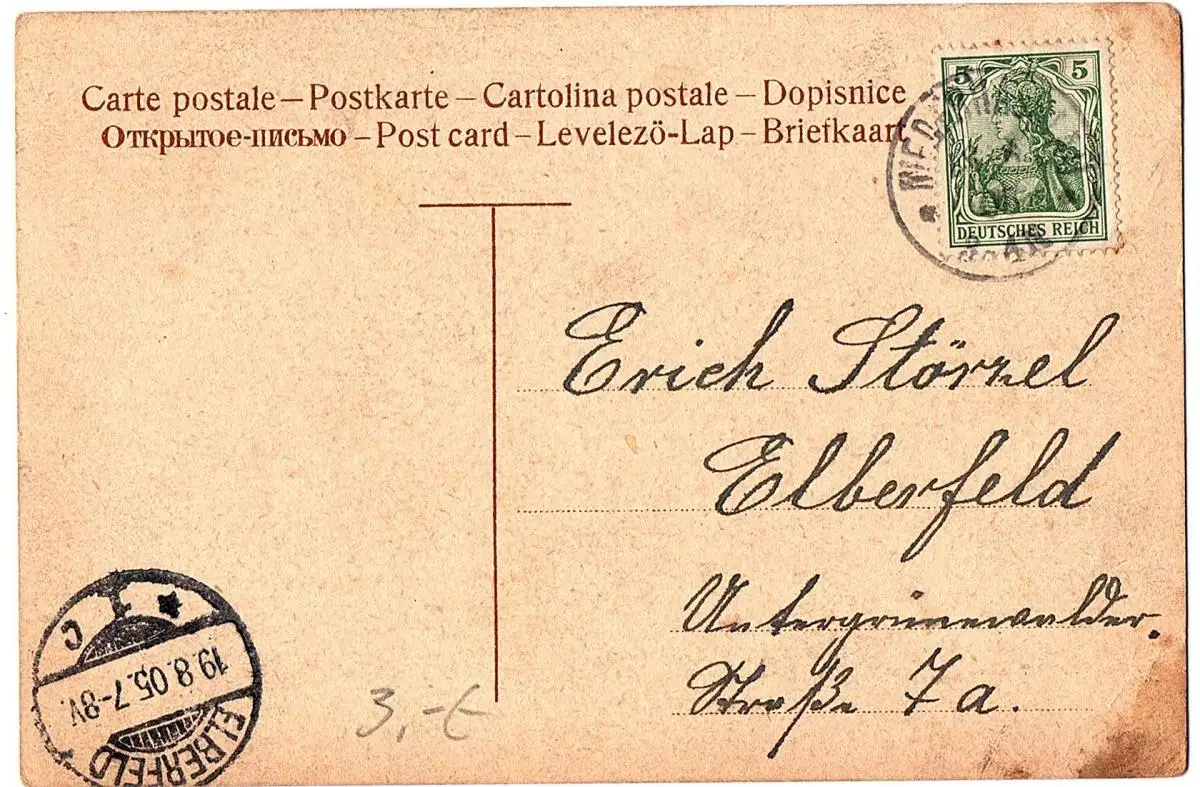 Carte postale – Postkarte – Cartolina postale – Dopisnice
Открытое-письмо – Post card – Levelezö-Lap – Briefkaart
5 5
DEUTSCHES REICH
Erich Störzel
Elberfeld
Untergrünewalder
Straße 7a.
3,-€
ELBERFELD
19.8.05.7-8V.
C